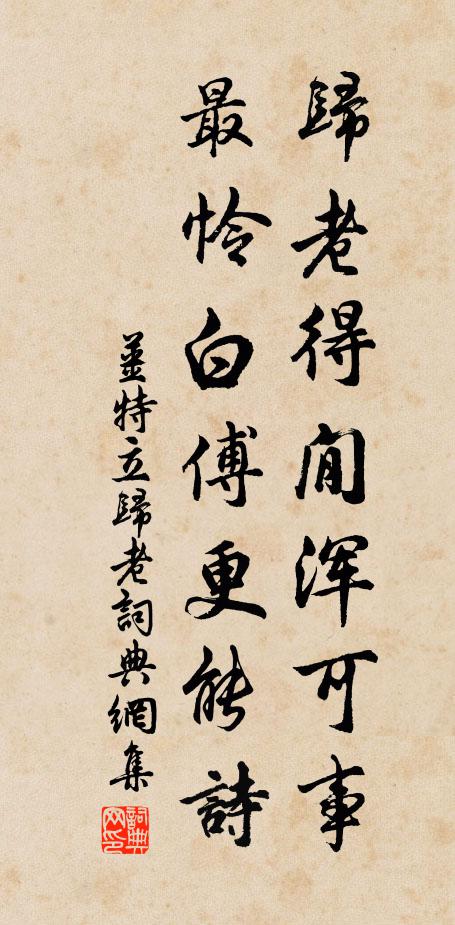 歸老得閒浑可事
最怜白傅更能詩
薑特立歸老詞典網集
詞典网印